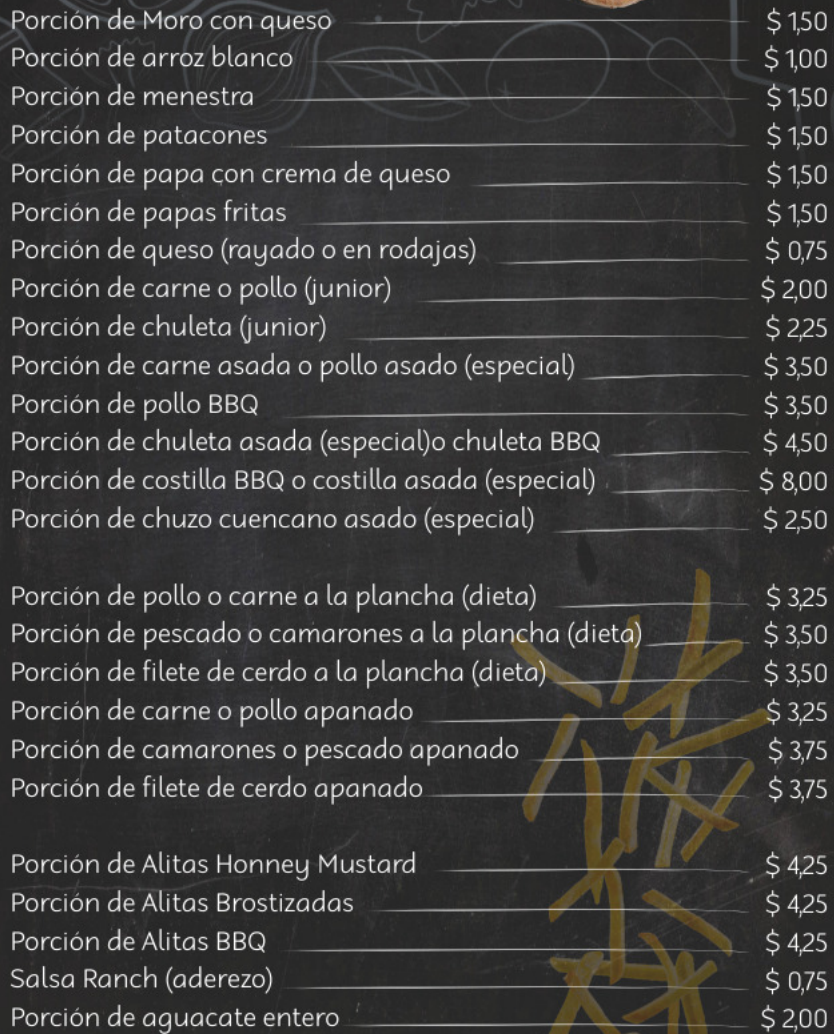 Porción de Moro con queso $ 1,50
Porción de arroz blanco $ 1,00
Porción de menestra $ 1,50
Porción de patacones $ 1,50
Porción de papa con crema de queso $ 1,50
Porción de papas fritas $ 1,50
Porción de queso (rayado o en rodajas) $ 0,75
Porción de carne o pollo (junior) $ 2,00
Porción de chuleta (junior) $ 2,25
Porción de carne asada o pollo asado (especial) $ 3,50
Porción de pollo BBQ $ 3,50
Porción de chuleta asada (especial)o chuleta BBQ $ 4,50
Porción de costilla BBQ o costilla asada (especial) $ 8,00
Porción de chuzo cuencano asado (especial) $ 2,50
Porción de pollo o carne a la plancha (dieta) $ 3,25
Porción de pescado o camarones a la plancha (dieta) $ 3,50
Porción de filete de cerdo a la plancha (dieta) $ 3,50
Porción de carne o pollo apanado $ 3,25
Porción de camarones o pescado apanado $ 3,75
Porción de filete de cerdo apanado $ 3,75
Porción de Alitas Honney Mustard $ 4,25
Porción de Alitas Brostizadas $ 4,25
Porción de Alitas BBQ $ 4,25
Salsa Ranch (aderezo) $ 0,75
Porción de aguacate entero $ 2,00